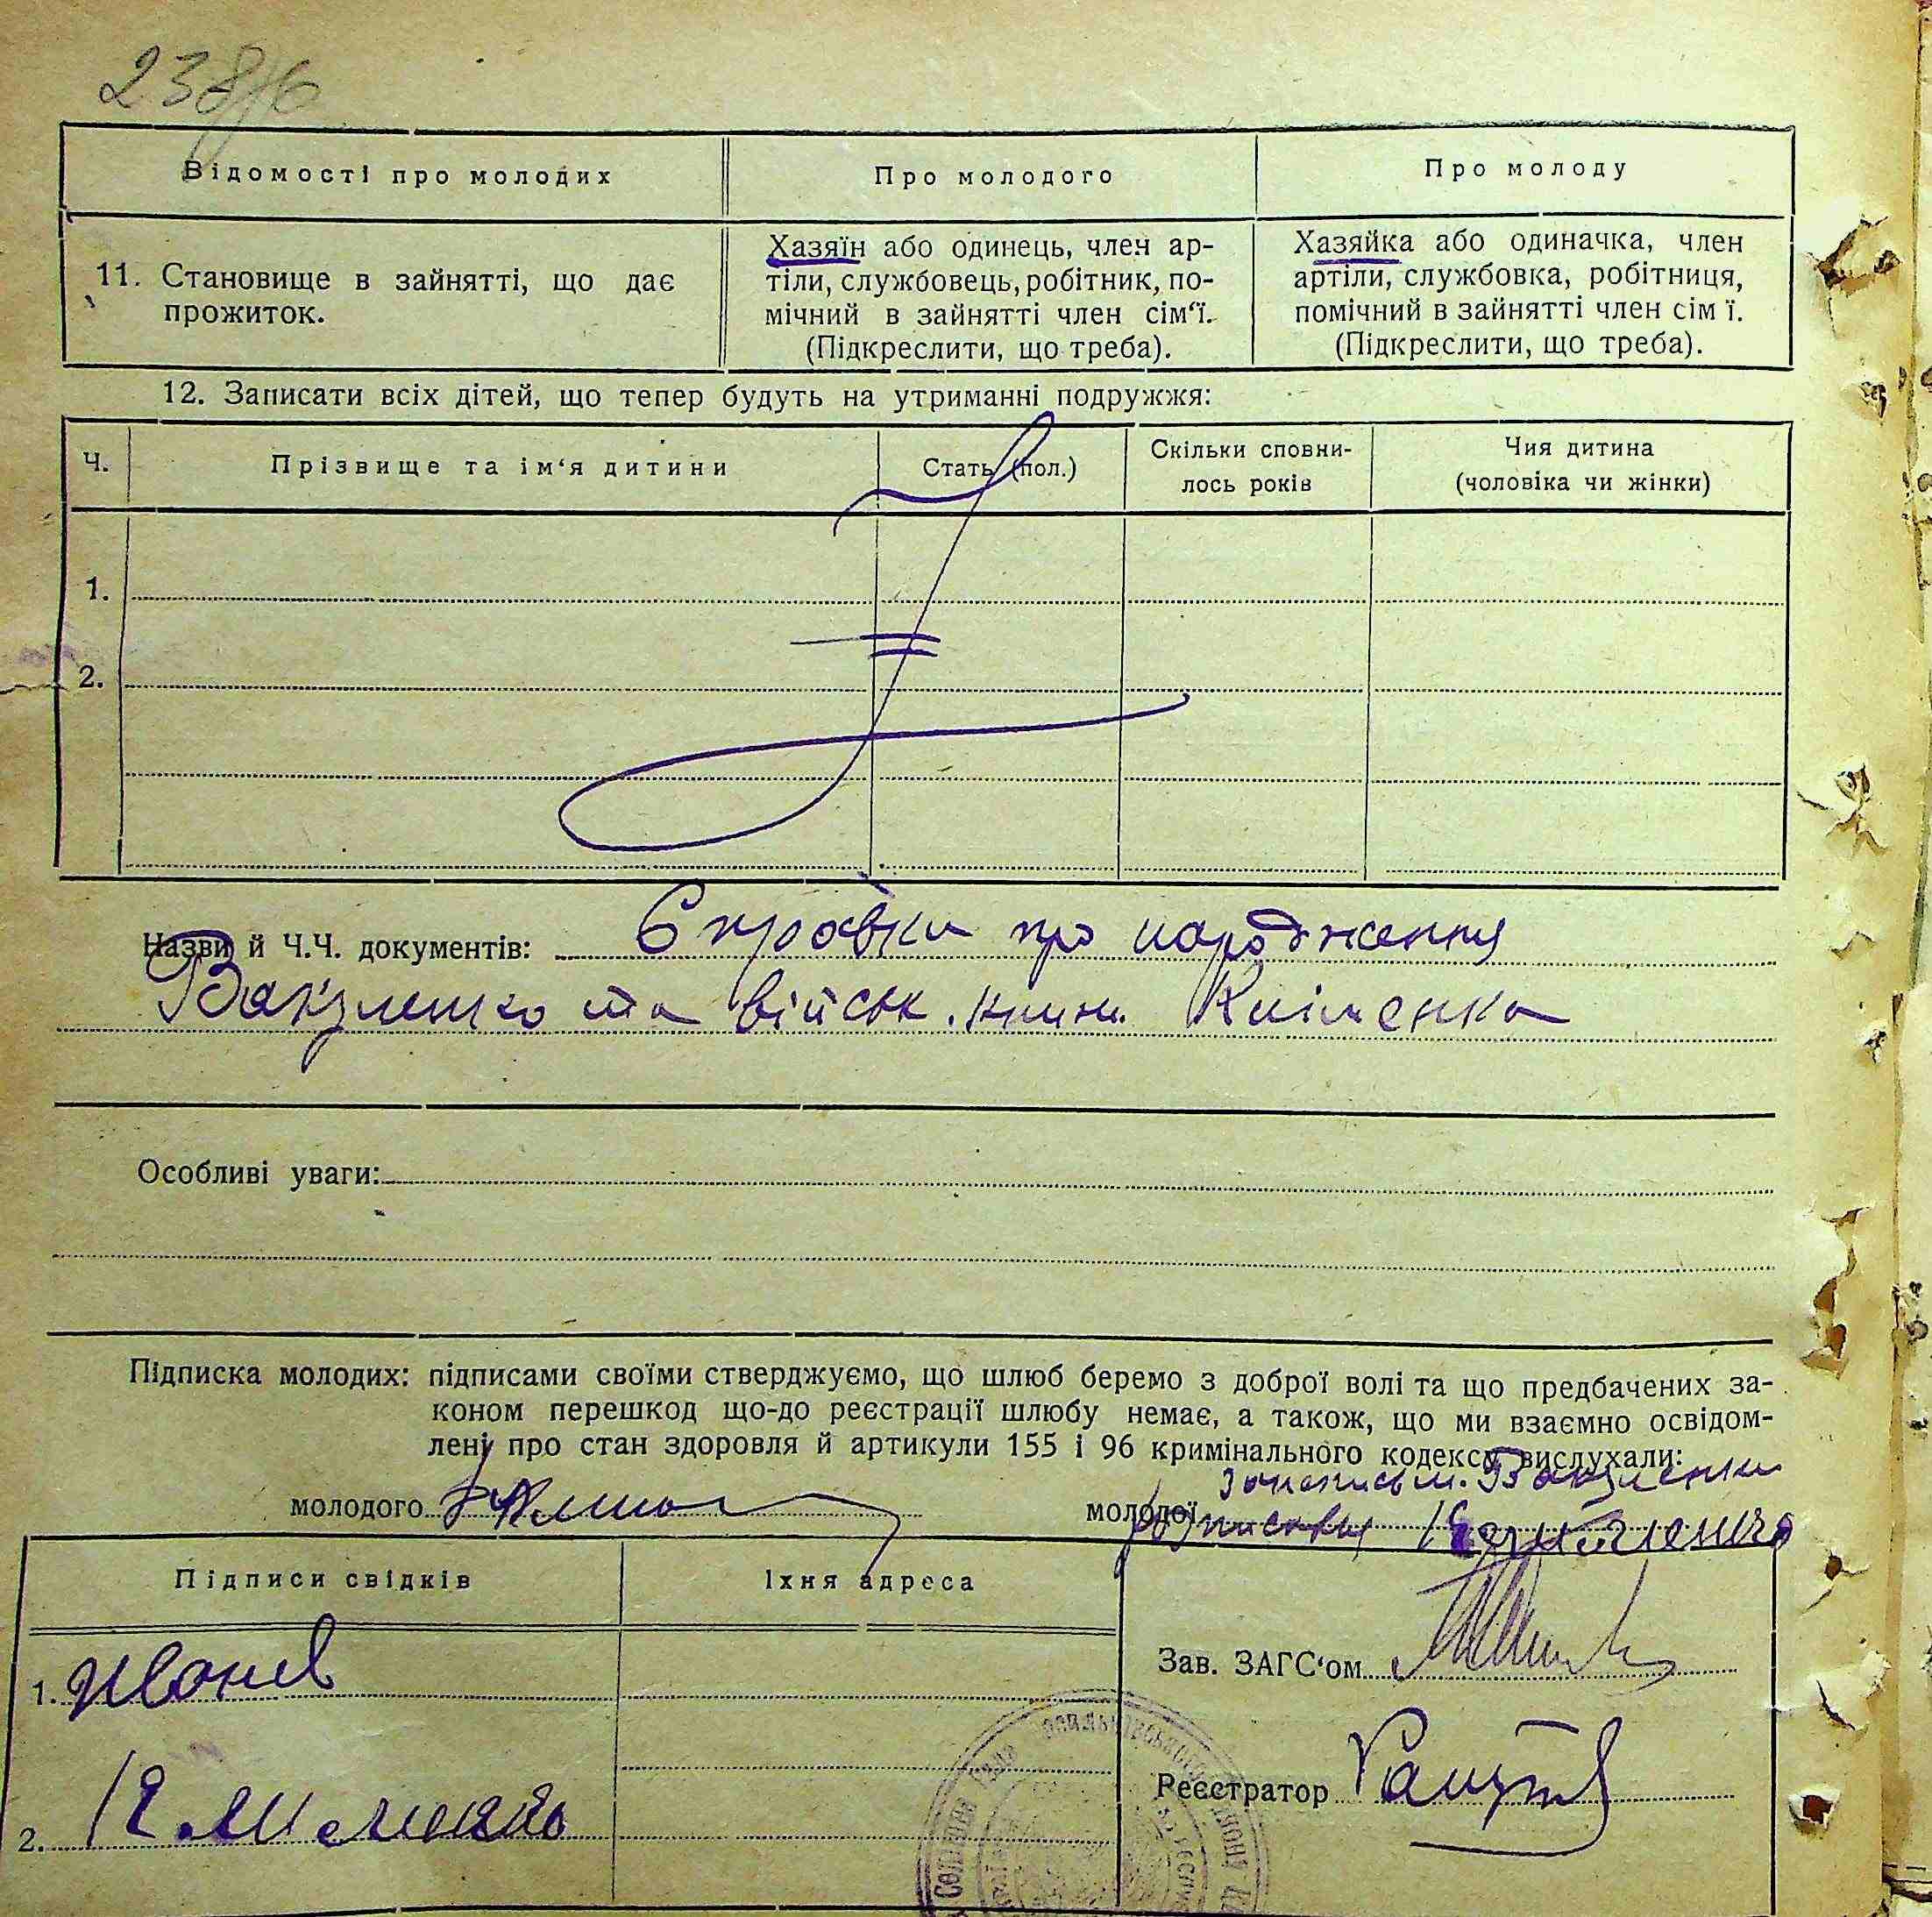 238/6
Відомості про молодих
Про молодого
Про молоду
11. Становище в зайнятті, що дає
прожиток.
Хазяїн або одинець, член ар-
тіли, службовець, робітник, по-
мічний в зайнятті член сім'ї.
(Підкреслити, що треба).
Хазяйка або одиначка, член
артіли, службовка, робітниця,
помічний в зайнятті член сім ї.
(Підкреслити, що треба).
12. Записати всіх дітей, що тепер будуть на утриманні подружжя:
Ч.
Прізвище та ім'я дитини
Стать (пол.)
Скільки сповни-
лось років
Чия дитина
(чоловіка чи жінки)
1.
2.
Назви й Ч.Ч. документів: Справки про народження
Вакуленко та військ. книж. Кліменка
Особливі уваги:
Підписка молодих: підписами своїми стверджуємо, що шлюб беремо з доброї волі та що предбачених за-
коном перешкод що-до реєстрації шлюбу немає, а також, що ми взаємно освідом-
лені про стан здоровля й артикули 155 і 96 кримінального кодексу вислухали:
молодого
Вакуленки
молодої
Підписи свідків
Їхня адреса
1.
2.
Зав. ЗАГС'ом
Реєстратор